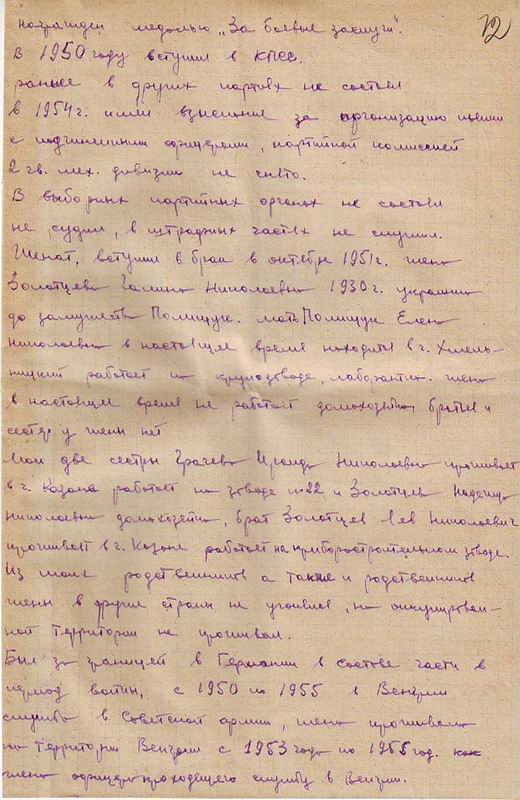 12
награжден медалью „За боевые заслуги".
В 1950 году вступил в КПСС.
ранее в других партиях не состоял
в 1954 г. имел взыскание за организацию пьянки
с подчиненными офицерами, партийной комиссией
2 гв. мех. дивизии не снято.
В выборных партийных органах не состоял
не судим, в штрафных частях не служил.
Женат, вступил в брак в октябре 1951 г. жена
Золотцева Галина Николаевна 1930 г. украинка
до замужества Полищук. мать Полищук Елена
Николаевна в настоящее время находится в г. Хмель-
ницкий работает на лаборантка. жена
в настоящее время не работает домохозяйка, братьев и
сестер у жены нет
Мои две сестры Грачева Николаевна проживает
в г. Казань работает на заводе №22, и Золотцева Надежда
Николаевна домохозяйка, брат Золотцев Лев Николаевич
проживает в г. Казань работает на приборостроительном заводе.
Из моих родственников а также и родственников
жены в другие страны не угонялся, на оккупирован-
ной территории не проживал.
Был за границей в Германии в составе части в
период войны, с 1950 по 1955 в Венгрии
служба в Советской армии, жена проживала
на территории Венгрии с 1953 года по 1955 год. как
жена офицера проходящего службу в Венгрии.